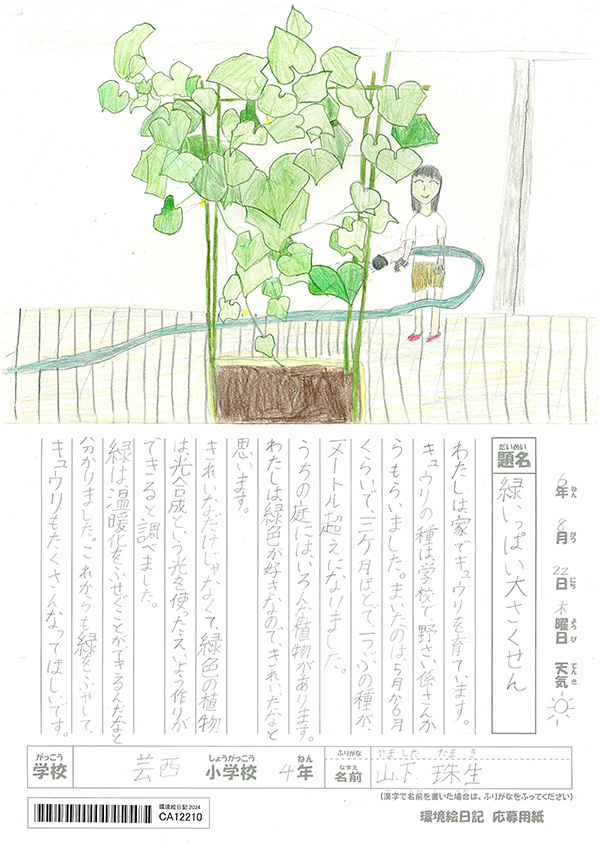 だいめい
題名
緑いっぱい大さくせん
6年 8月 22日 木曜日 天気
ねん がつ にち ようび てんき
わたしは家でキュウリを育ています。
キュウリの種は学校で野さい係さんか
らもらいました。まいたのは5月から6月
くらいで、三ケ月ほどで、一つぶの種が、
メートル超えになりました。
うちの庭には、いろんな植物があります。
わたしは緑色が好きなので、きれいだなと
思います。
きれいなだけじゃなくて、緑色の植物
は光合成という光を使ったえいよう作りが
できると調べました。
緑は温暖化をふせぐことができるんだなと
分かりました。これからも緑をふやして、
キュウリもたくさんなってほしいです。
がっこう しょうがっこう ねん
学校 芸西 小学校 4年
ふりがな やました たまき
なまえ
名前 山下 珠生
(漢字で名前を書いた場合は、ふりがなをふってください)
環境絵日記 2024
CA12210
環境絵日記 応募用紙